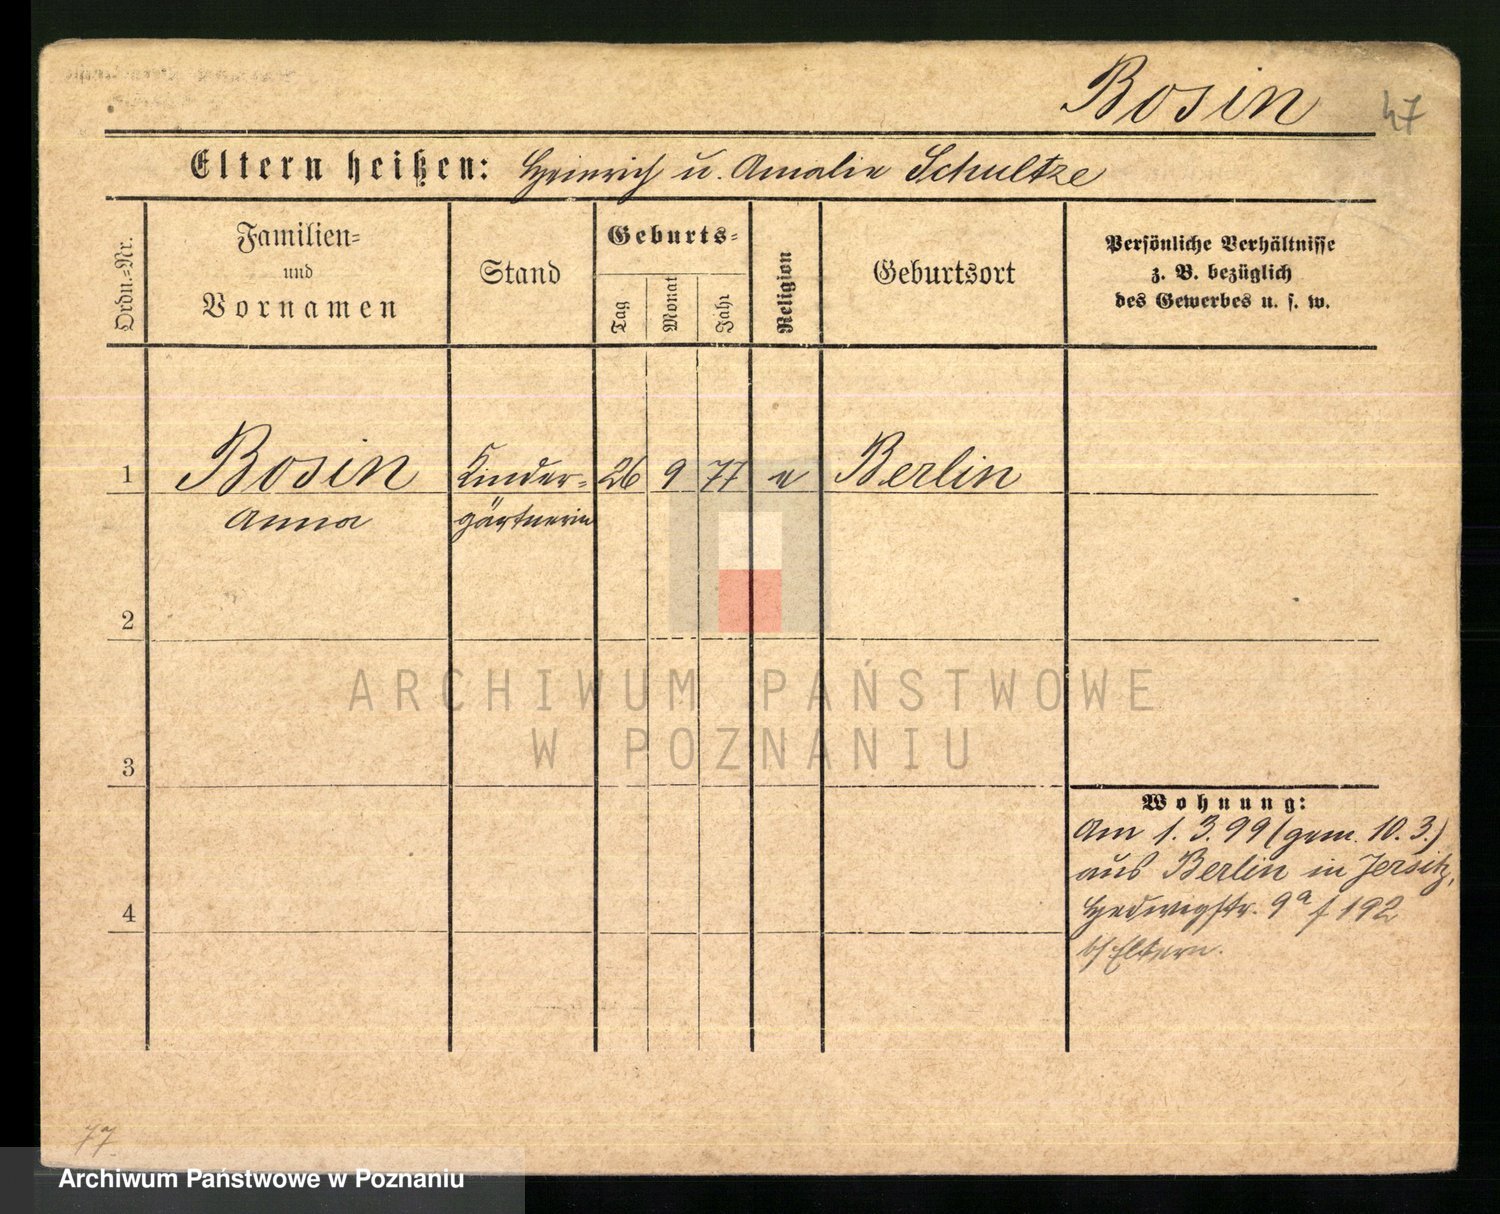 Bosin
47
Eltern heißen: Heinrich u. Amalie Schultze
Ordn.-Nr.
Familien-
und
Vornamen
Stand
Geburts-
Tag
Monat
Jahr
Religion
Geburtsort
Persönliche Verhältnisse
z. B. bezüglich
des Gewerbes u. s. w.
1 Bosin Kinder- 26 9 77 e Berlin
Anna gärtnerin
2
3
4
Wohnung:
Am 1. 3. 99 (gem. 10. 3.)
aus Berlin in Jersitz,
Hedwigstr. 9a f 192
b/ Eltern.
ARCHIWUM PAŃSTWOWE
W POZNANIU
77
Archiwum Państwowe w Poznaniu